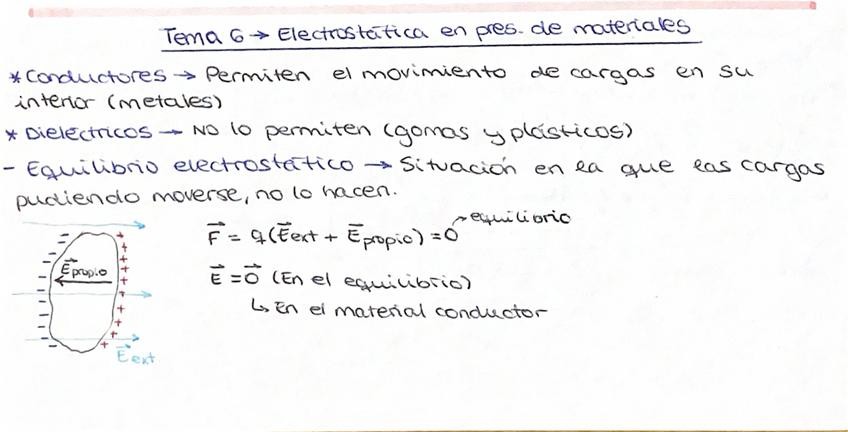 Tema 6 → Electrostática en pres. de materiales
* Conductores → Permiten el movimiento de cargas en su
interior (metales)
* Dieléctricos → NO lo permiten (gomas y plásticos)
- Equilibrio electrostático → Situación en la que las cargas
pudiendo moverse, no lo hacen.
F⃗ = q(E⃗ext + E⃗propio) = 0 → equilibrio
E⃗ = 0⃗ (En el equilibrio)
↳ En el material conductor
E⃗propio
E⃗ext